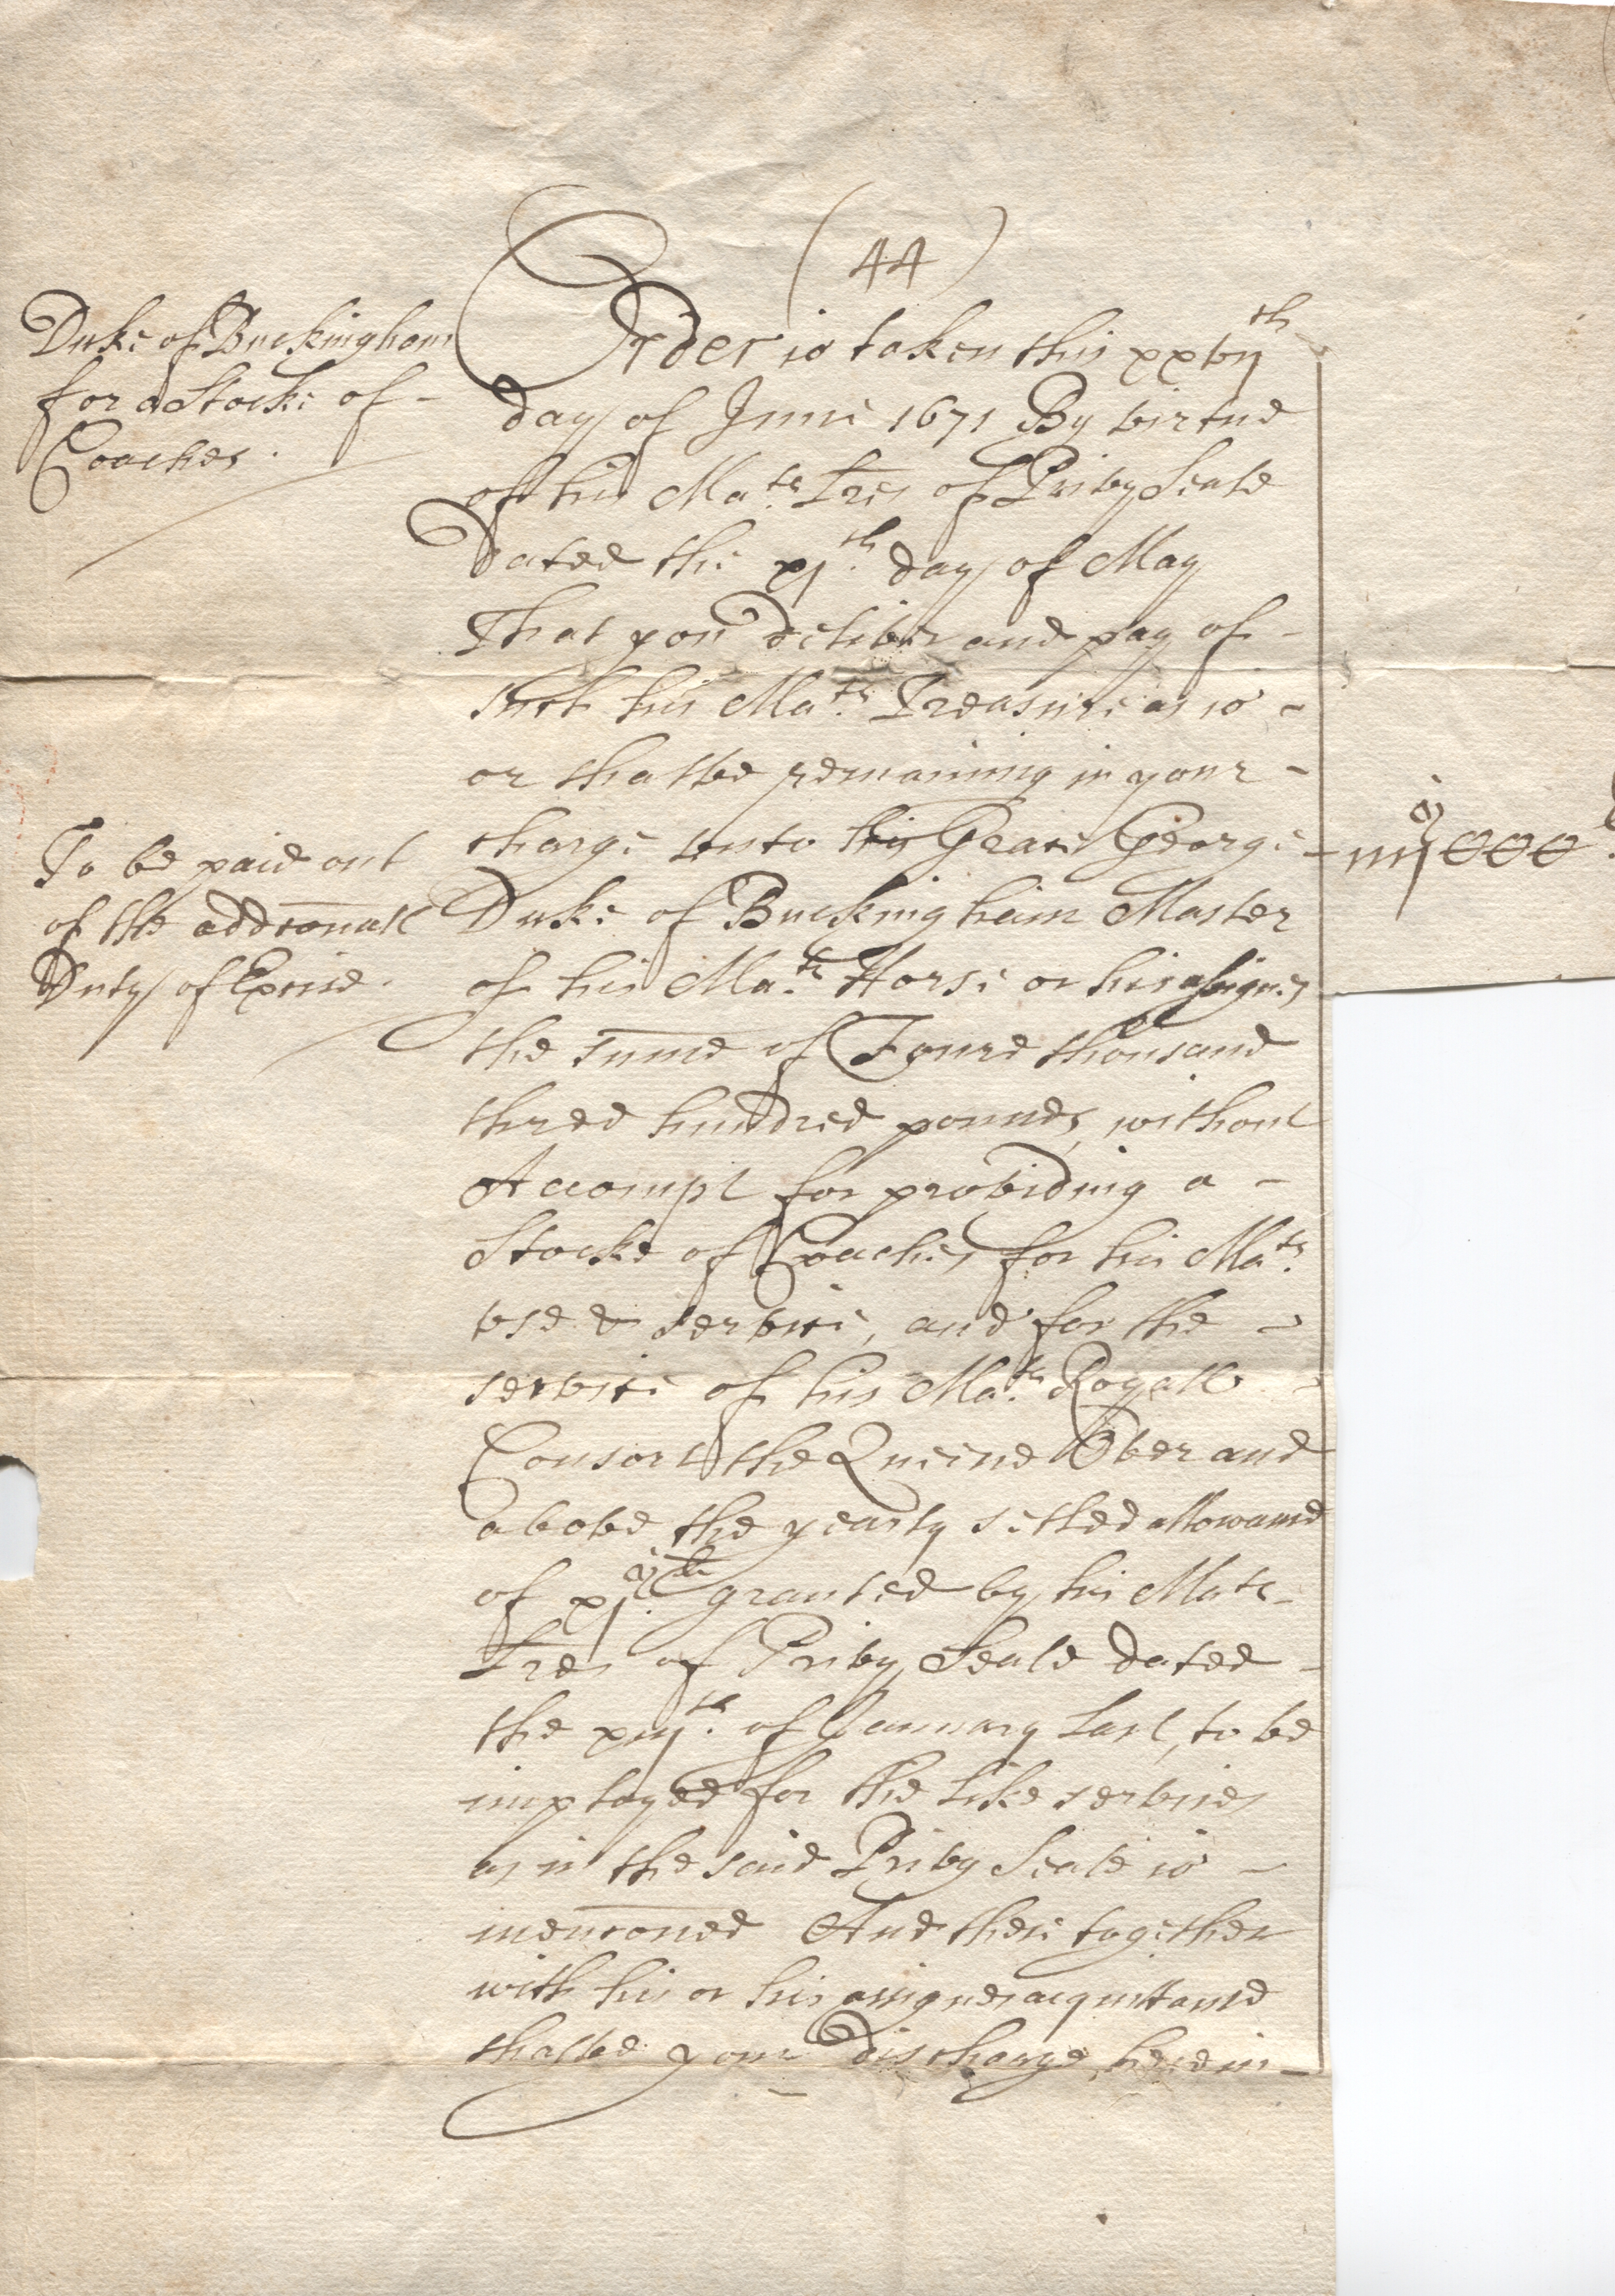 (44)
Duke of Buckingham
for a Stocke of -
Coaches.
Order is taken this xxvijth
day of June 1671 By virtue
of his Mats Lres of Privy Seale
Dated the xjth day of May
That you deliver and pay of -
such his Mats Treasure as is -
or shalbe remaining in your -
charge unto his Grace George -
Duke of Buckingham Master
of his Mats Horse or his assignes
the sume of Foure thousand
three hundred pounds, without
Accompt for provideing a -
Stocke of Coaches for his Mats
use & service, and for the -
service of his Mats Royall -
Consort the Queene Over and
above the yearly setled allowance
of granted by his Mats -
Lres of Privy Seale dated -
the of January Last, to be
imployed for the like services
as in the said Privy Seale is -
mencioned And these together
with his or his assignes acquittance
shalbe your discharge herein -
To be paid out
of the addiconall
Duty of Excise.